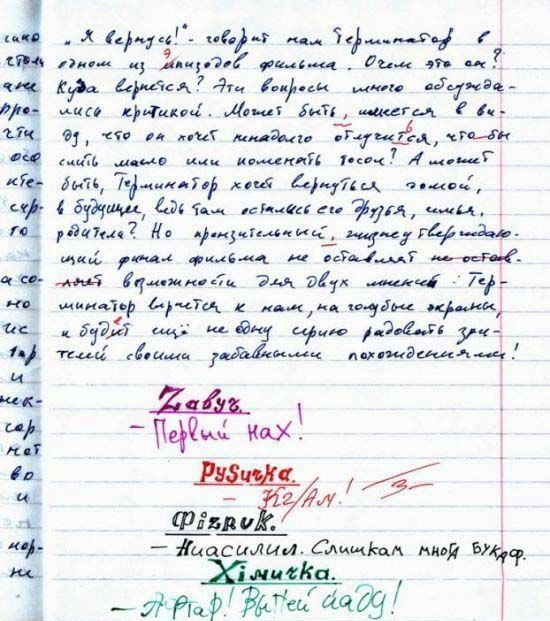 „Я вернусь!"- говорит нам Терминатор в
одном из эпизодов фильма. Очем это он?
Куда вернется? Эти вопросы много обсужда-
лись критикой. Может быть, имеется в ви-
ду, что он хочет ненадолго отлучится, что бы
слить масло или поменять тосол? А может
быть, Терминатор хочет вернуться домой,
в будущее, ведь там остались его друзья, семья,
родители? Но пронзительный, жизнеутверждаю-
щий финал фильма не оставляет не остав-
ляет возможности для двух мнений: Тер-
минатор вернется к нам, на голубые экраны,
и будет ещё не одну серию радовать зри-
телей своими забавными похождениями!
Zавуч.
- Первый нах!
РуSичка.
- Кг/Ам! 3-
Фizруk.
- Ниасилил. Слишкам многа букаф.
Хiмичка.
- Афтар! Выпей йаду!
сино
столи
ани
про-
чти
осо
нте-
сер-
го
а со-
но
ис
тар
и
нек-
сар
нет
во
и
нор-
ни